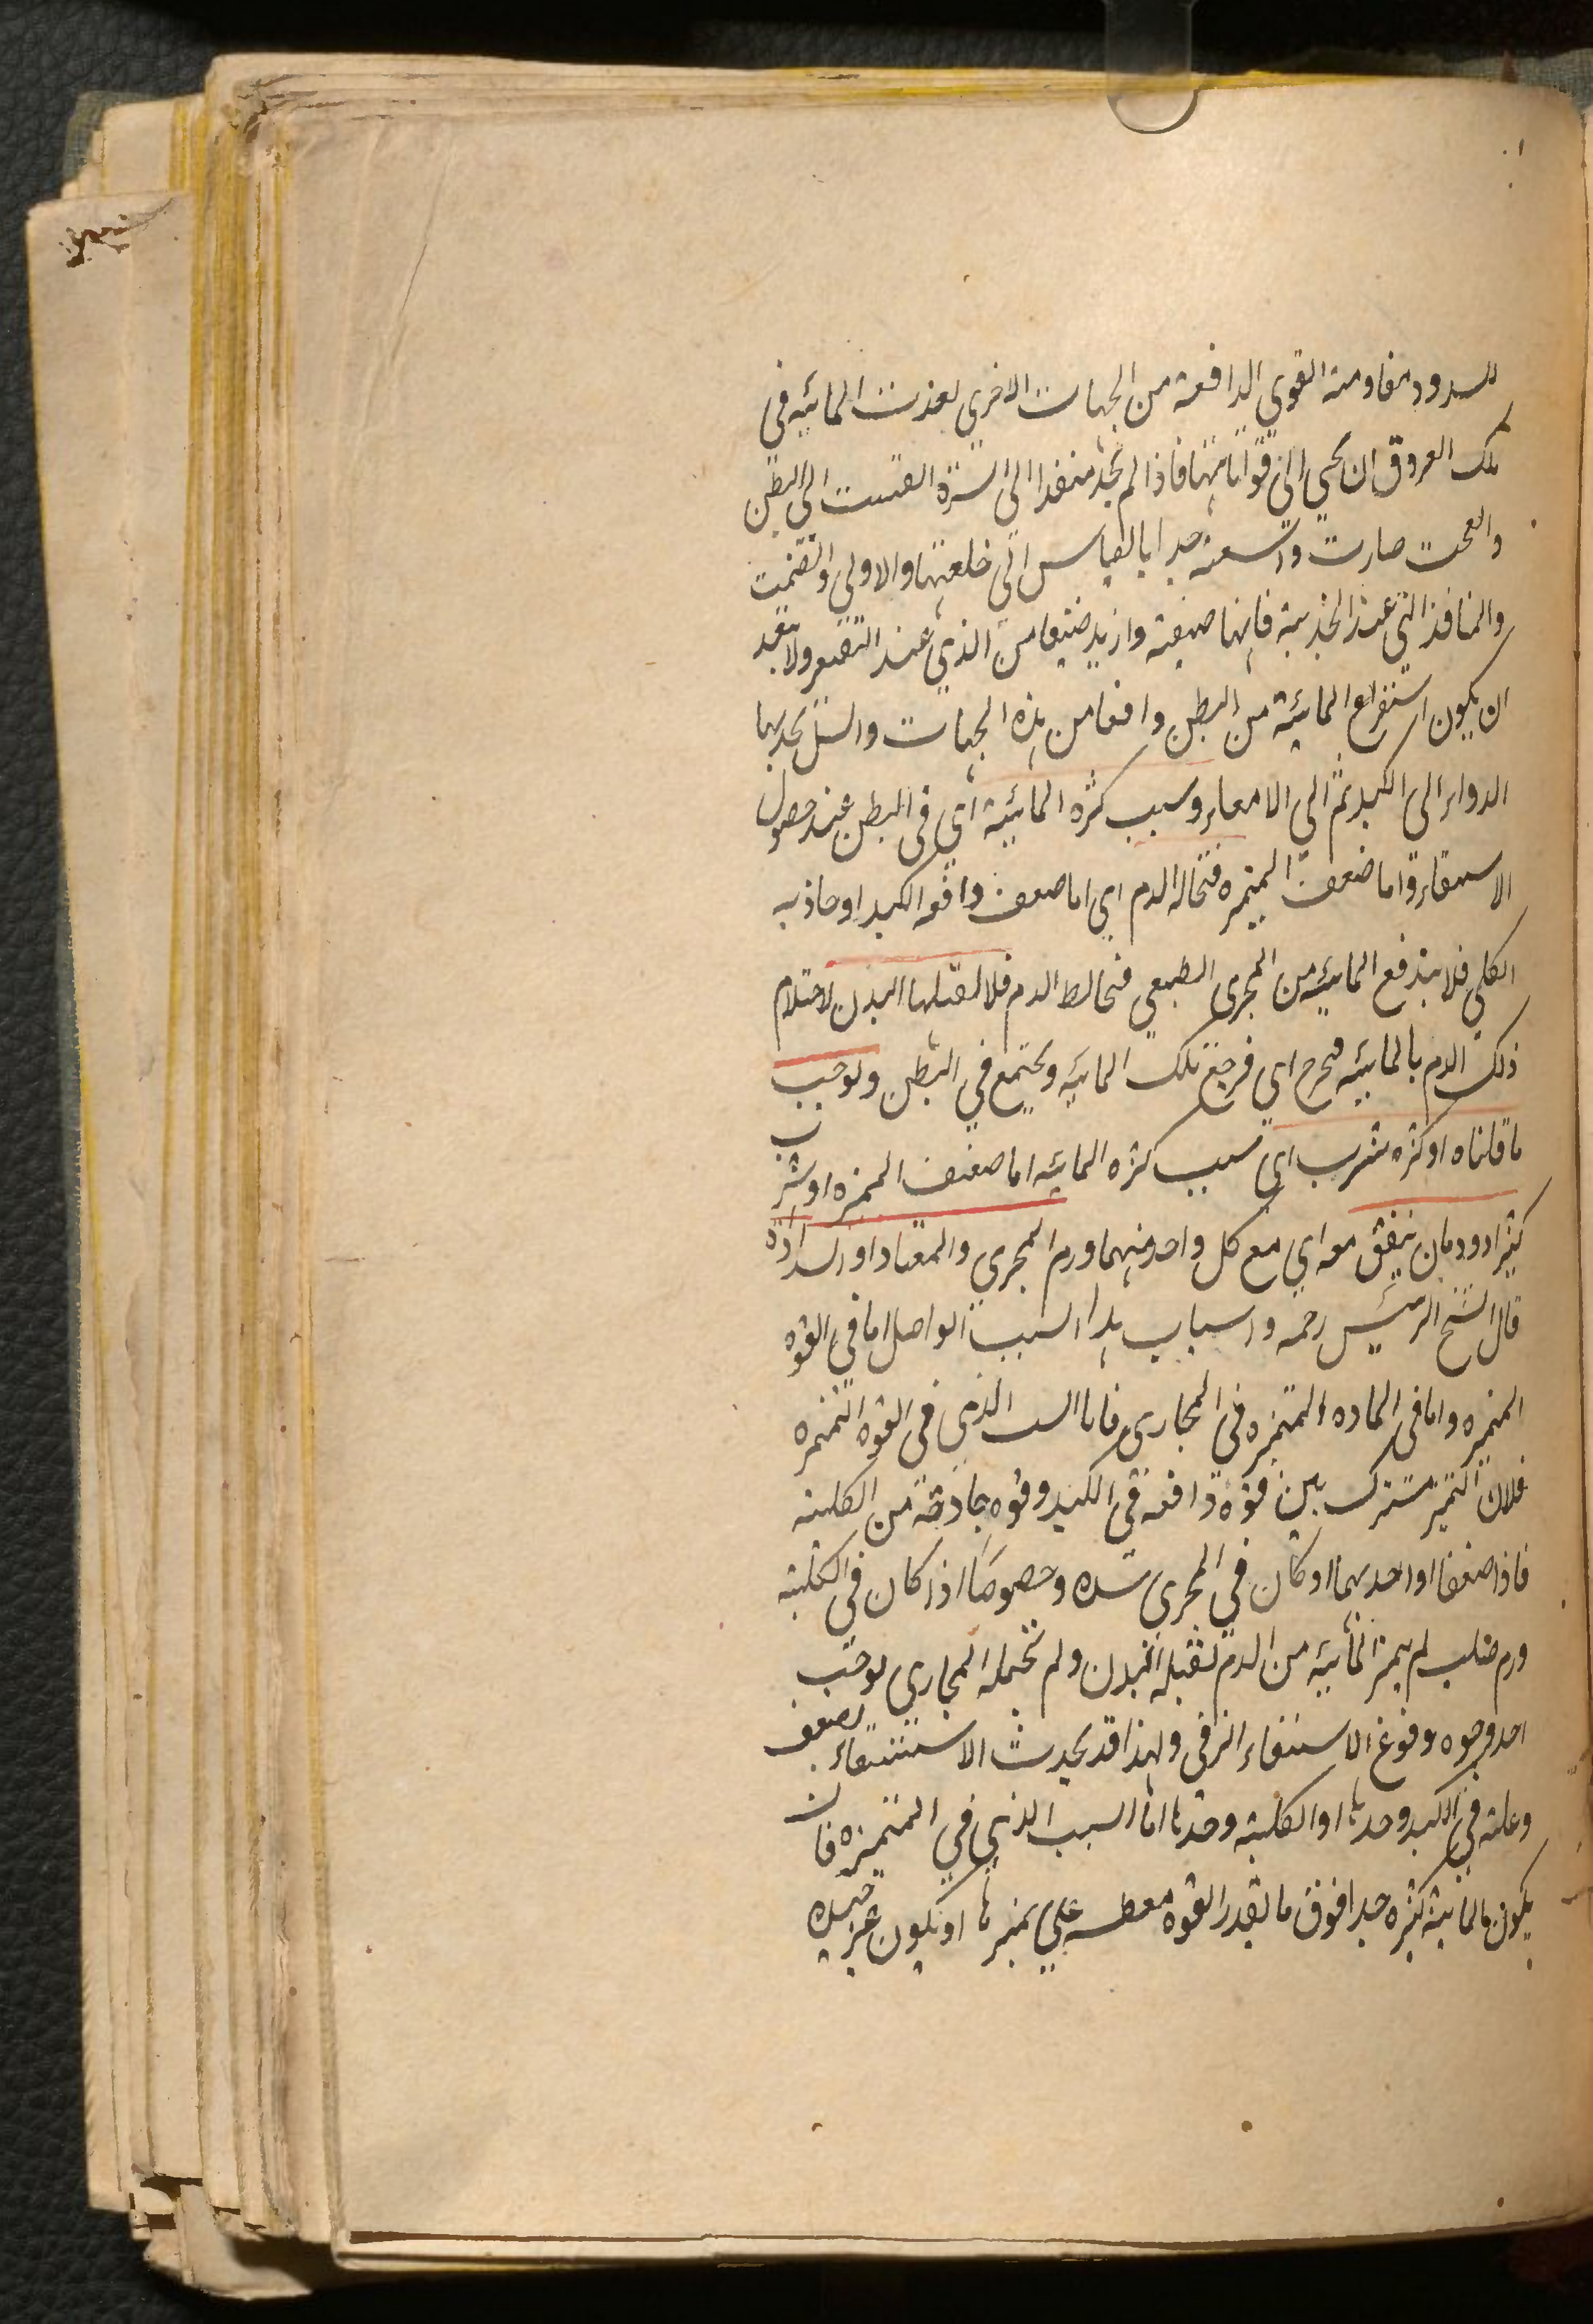 للسدود مقاومة القوي الدافعة من الجهات الاخري نفذت المائيه في
تلك العروق ان يجي الي فوهاتها فاذا لم يجد منفذا الي السرة انفتقت الي البطن
وانفتحت صارت واسعة جدا بالقياس الي خلقتها والاولي وانضمت
والمنافذ التي عند الحدبة فانها ضيقة وازيد ضيقا من الذي عند التقعير ولا يبعد
ان يكون استفراغ المائية من البطن واقعا من هذه الجهات والسبل يجذبها
الدواء الي الكبد ثم الي الامعاء وسبب كثره المائيية اي في البطن عند حصول
الاستسقاء واما ضعف المميزه فتخاله الدم اي اما ضعف دافعه الكبد او جاذبه
الكلي فلا يندفع المائيه من المجري الطبيعي فتخالط الدم فلا تقبلها البدن لاحتلام
ذلك الدم بالمائيه فيخرج اي فرجع تلك المائيه ويجتمع في البطن ويوجب
ما قلناه او كثره شرب اي سبب كثره المائيه اما ضعف المميزه او شرب
كثيرا ودمان يتفق معه اي مع كل واحد منهما ورم المجري والمعتاد او السدادة
قال الشيخ الرئيس رحمه واسباب هذا السبب الواصل اما في القوه
المميزه واما في الماده المتميزه في المجاري فاما السبب الذي في القوه التميزه
فلان التميز مشترك بين قوه دافعه في الكبد وقوه جاذبة من الكليته
فاذا ضعفا او احديهما او كان في المجري سده وخصوصا اذا كان في الكليته
ورم صلب لم يميز المائيه من الدم لقبله البدن ولم تحمله المجاري يوجب
احد وجوه وقوع الاستسقاء الزقي ولهذا قد يحدث الاستسقاء لضعف
وعلته في الكبد وحدها او الكليته وحدها اما السبب الذي في المتميزه فان
يكون المائية كثيره جدا فوق ما تقدر القوه معطه علي تميزها او يكون غير جيده